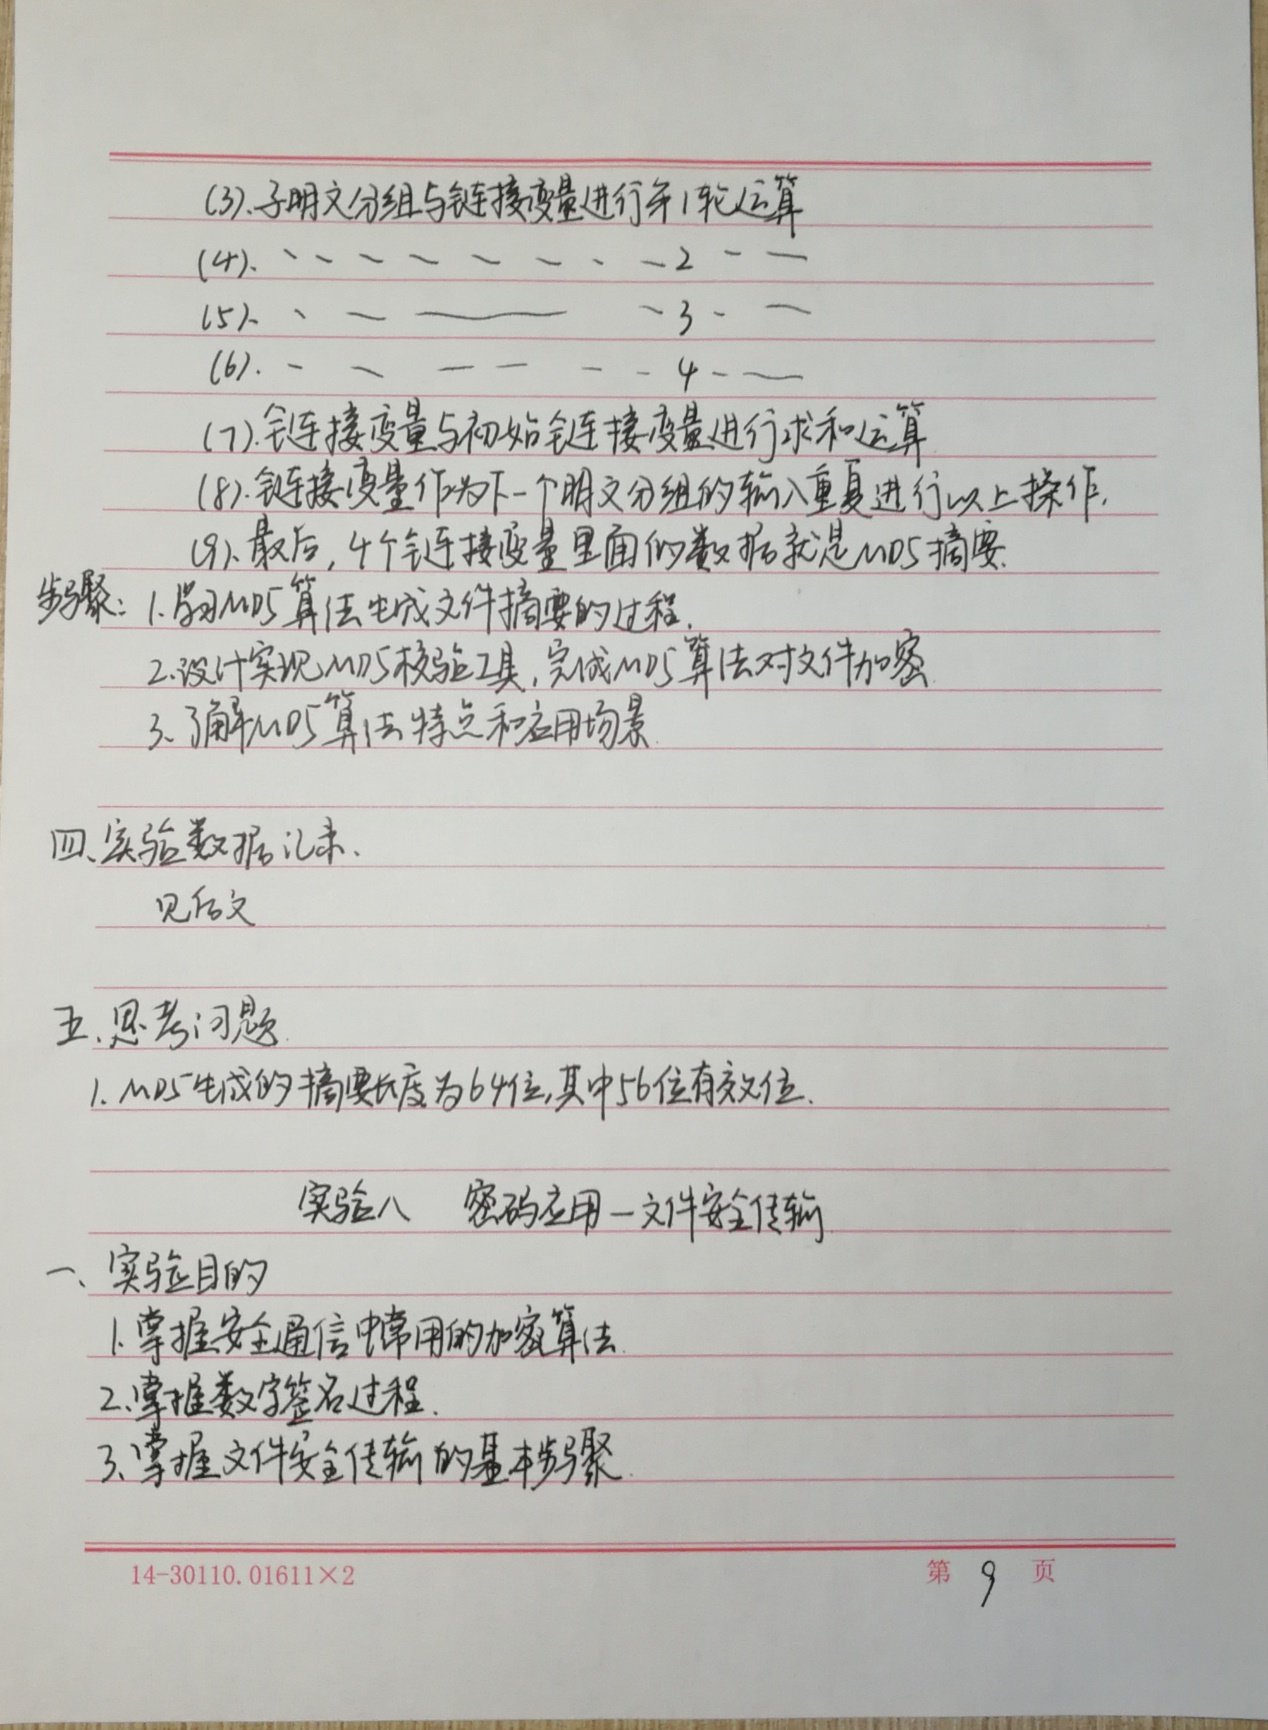 (3).子明文分组与链接变量进行第1轮运算
(4). 、、 - - - - - - 2 - —
(5). 、 — —— - 3 - —
(6). - - - - - - 4 - —
(7).链接变量与初始链接变量进行求和运算
(8).链接变量作为下一个明文分组的输入重复进行以上操作.
(9).最后,4个链接变量里面的数据就是MD5摘要.
步骤: 1.学习MD5算法生成文件摘要的过程.
2.设计实现MD5校验工具,完成MD5算法对文件加密
3.了解MD5算法特点和应用场景.
四、实验数据记录.
见后文
五.思考问题.
1.MD5生成的摘要长度为64位,其中56位有效位.
实验八 密码应用—文件安全传输
一、实验目的
1.掌握安全通信中常用的加密算法.
2.掌握数字签名过程.
3.掌握文件安全传输的基本步骤.
14-30110.01611×2 第 9 页